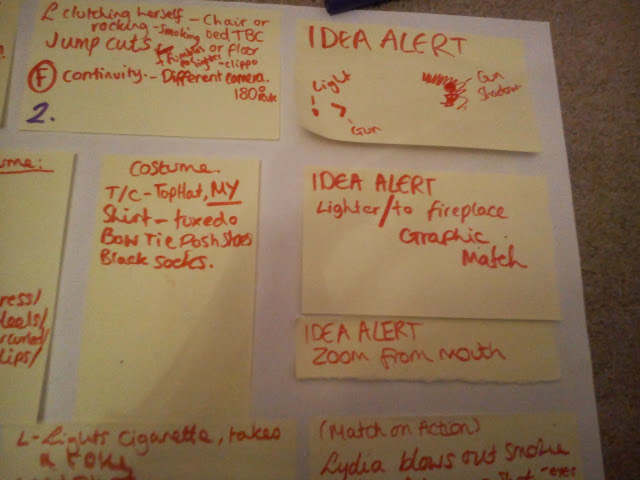 L clutching herself - Chair or
rocking - smoking bed TBC
Jump cuts or floor
lighter - clippo
F continuity. - Different camera.
180° Rule
2.
IDEA ALERT
Light
Gun
Gun
Shadow
Costume.
T/C - TopHat, MY
Shirt - tuxedo
Bow Tie Posh Shoes
Black socks.
IDEA ALERT
Lighter/to fireplace
Graphic
Match
IDEA ALERT
Zoom from mouth
ume:
ress/
eels/
urled/
lips/
L - Lights cigarette, takes
a
(Match on Action)
Lydia blows out smoke